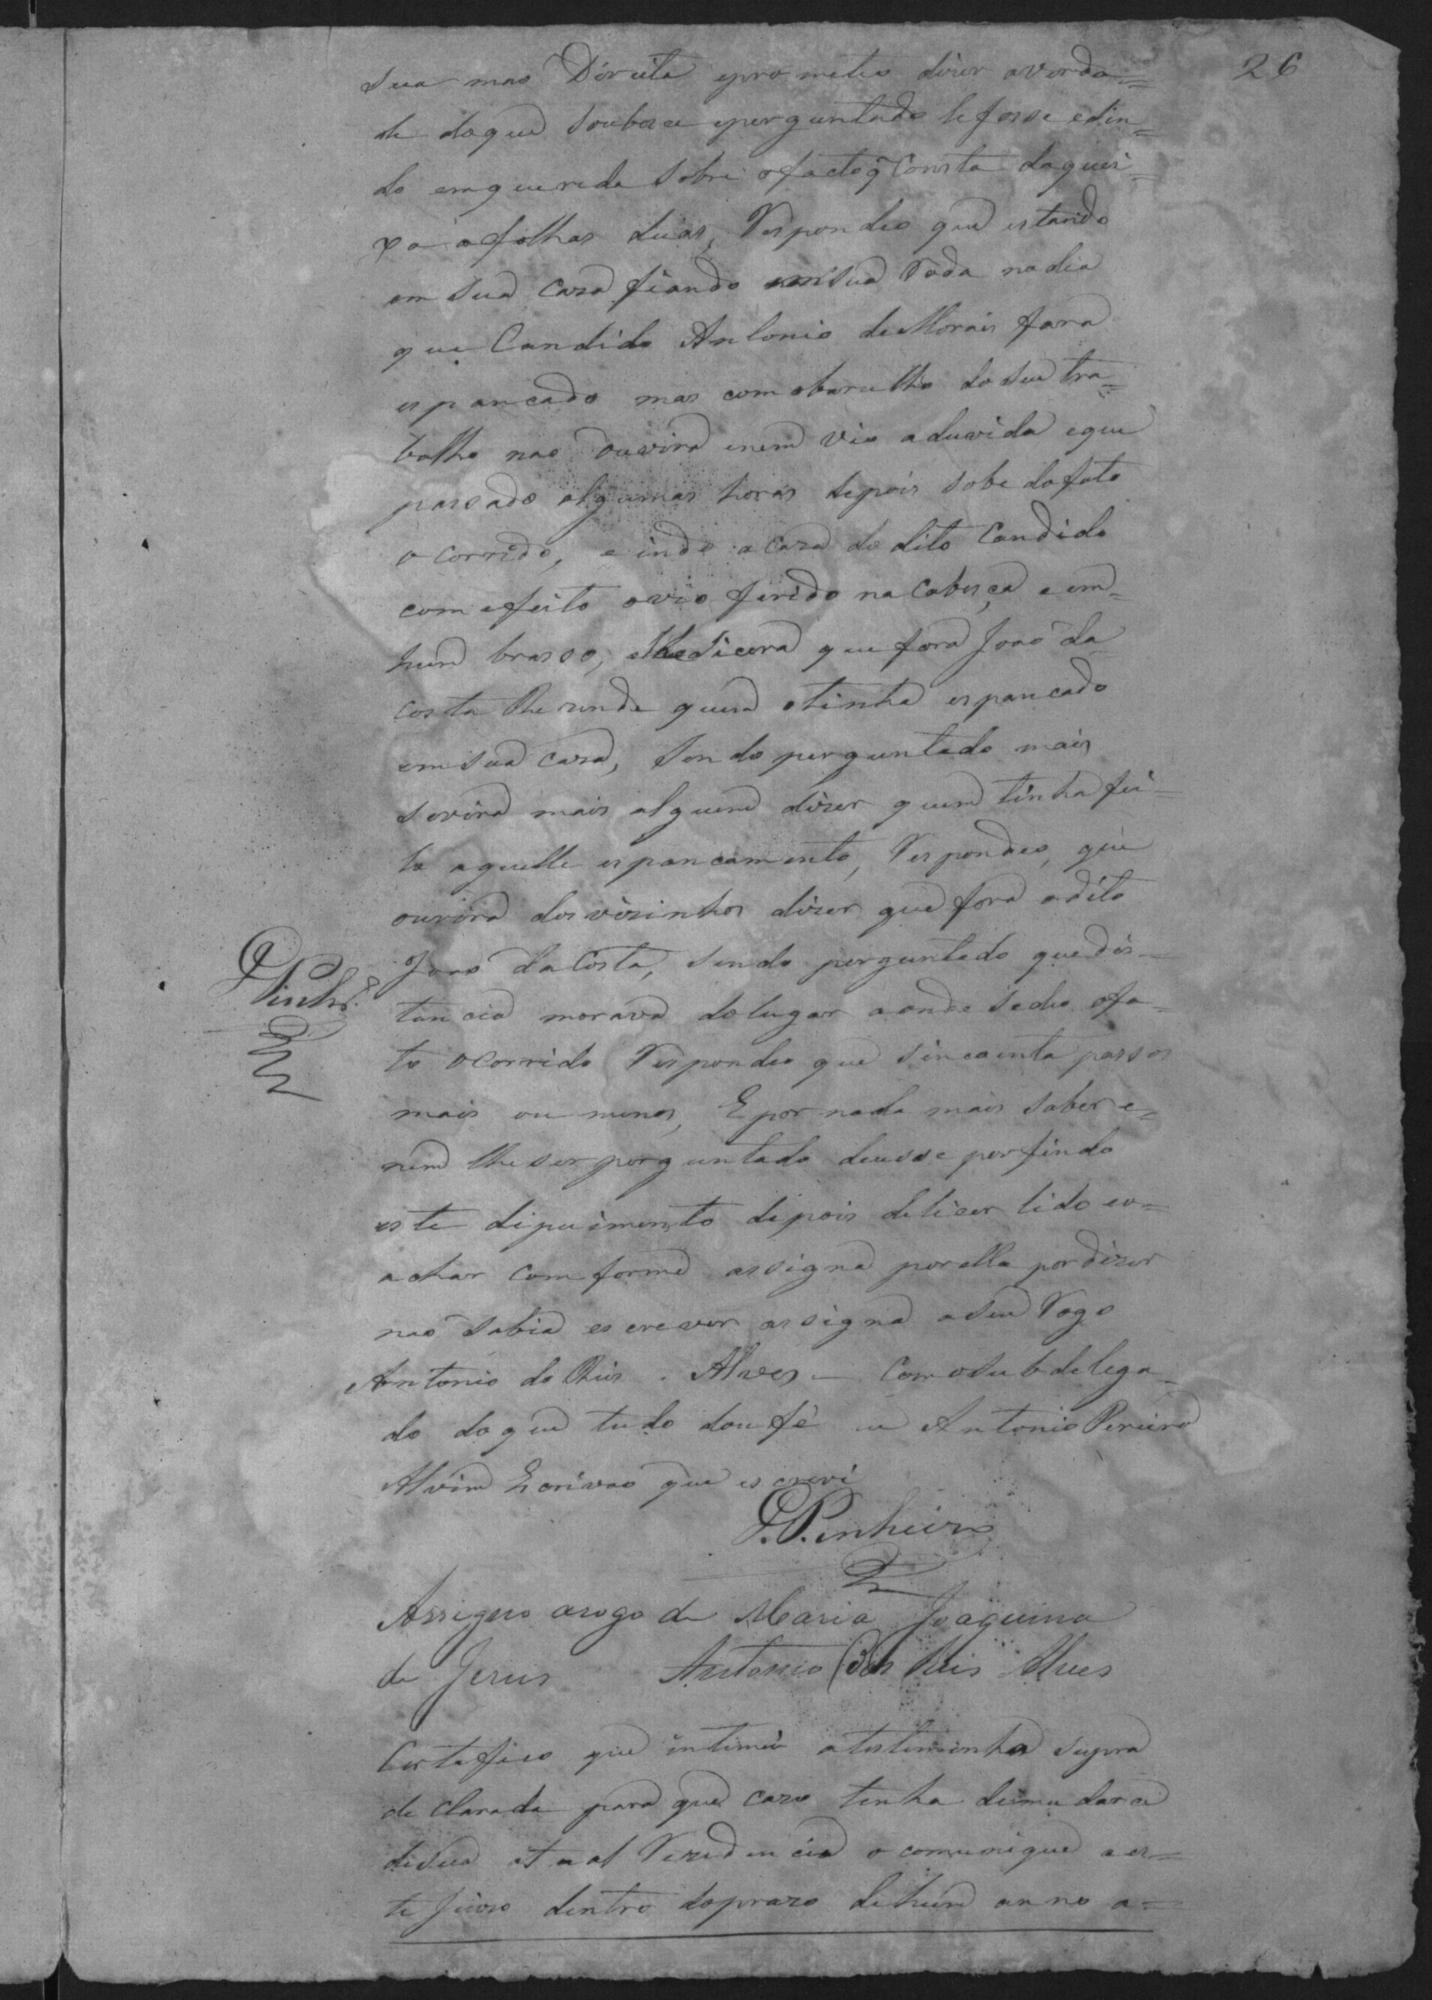 26
sua mao Direita eprometeo diser averda=
de doque soubese eperguntado lefosse edin=
do emquerida sobre ofacto q̃ Consta daquei=
xa afolhas duas, Respondeo que estando
em sua casa fiando em sua Roda nodia
que Candido Antonio deMorais fora
espancado mas com obarulho do seu tra=
balho nao ouvira enem vio aduvida eque
passado algumas horas depois sobe dofato
ocorrido, e indo acasa do dito Candido
com efeito ovio ferido na Cabeça e em=
hum brasso, elhe dicera que fora Joao da
Costa Resende quem otinha espancado
em sua casa, Sendo perguntado mais
seovira mais alguem diser quem tinha fei=
to aquelle espancamento, Respondeo, que
ouvira dos visinhos diser que fora odito
Joao daCosta, sendo perguntado que dis=
tancia morava dolugar aonde sedeo ofa=
to ocorrido Respondeo que sincoenta passos
mais ou menos, E por nada mais saber e=
nem lhe ser perguntado deusse porfindo
este dipuimento depois delheser lido eo=
achar comforme assigna porella pordizer
nao sabia escrever assigna aseu Rogo
Antonio do Reis Alves – Com osubdelega=
do doque tudo doufé eu Antonio Pereira
Alvim Escrivao que escrevi
Pinhr.º
P. Pinheiro
Assigno arogo de Maria Joaquina
de Jesus Antonio dos Reis Alves
Certefico que intimei atestiminha supra
declarada para que caso tenha demudarce
desua atual Residencia o comunique aes=
te Juiso dentro doprazo dehum anno a=